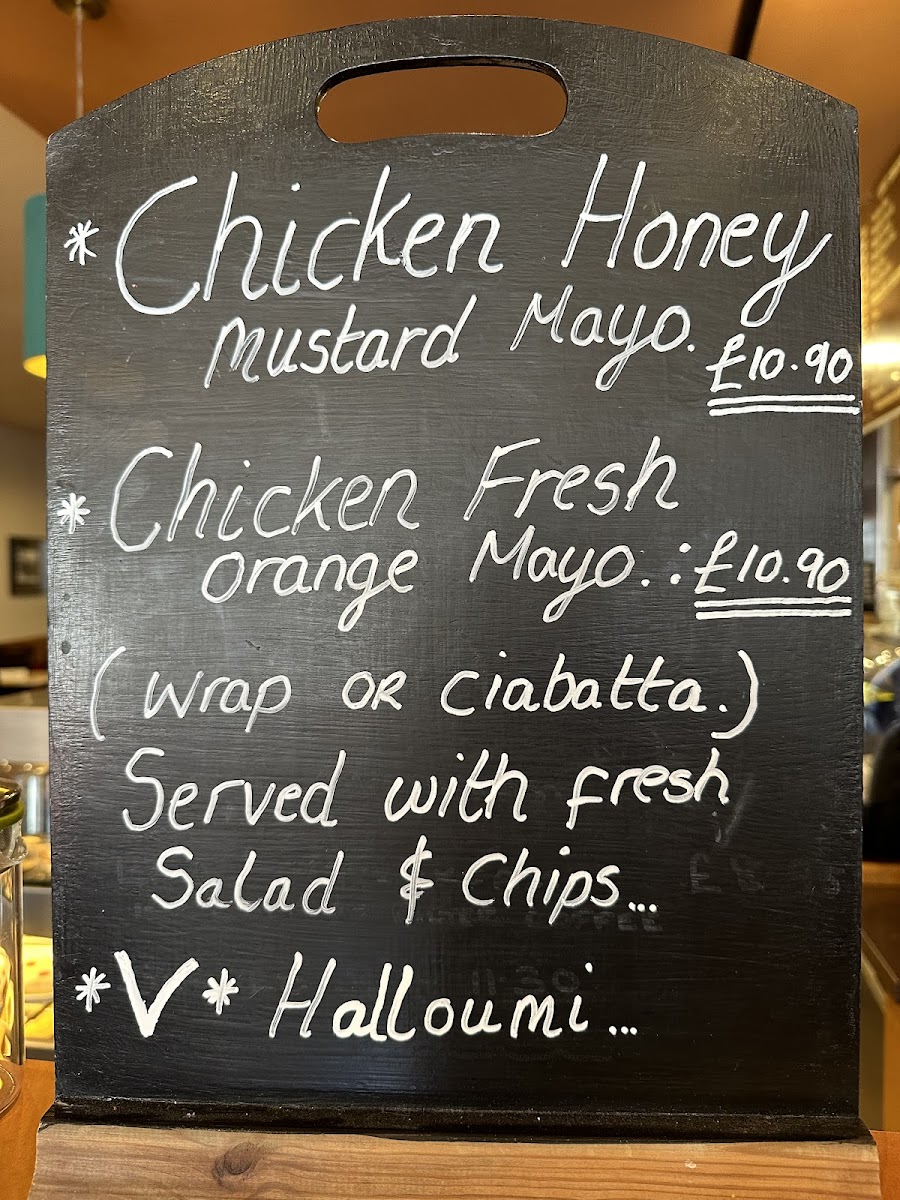 * Chicken Honey
mustard Mayo. £10.90
* Chicken Fresh
orange Mayo. : £10.90
(wrap OR Ciabatta.)
Served with fresh
Salad & Chips...
*V* Halloumi...
11:30